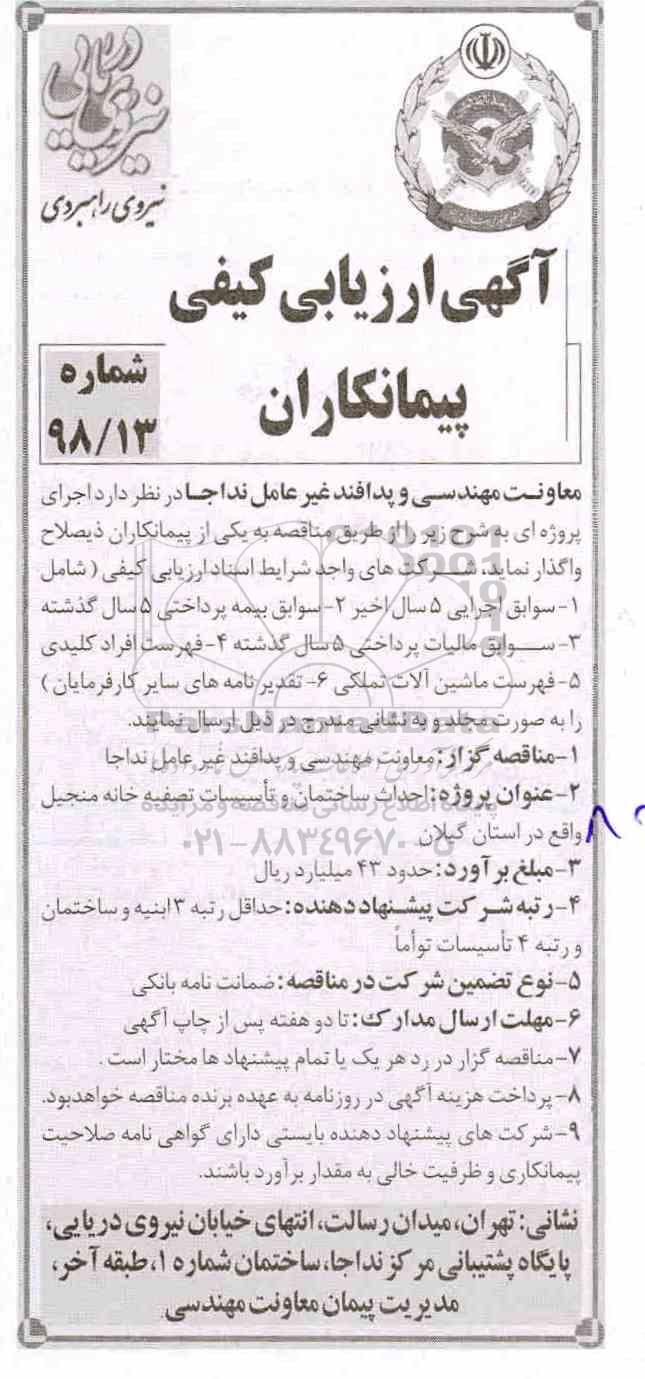 نیروی دریایی
نیروی راهبردی
آگهی ارزیابی کیفی
پیمانکاران
شماره
۹۸/۱۳
معاونت مهندسی و پدافند غیر عامل نداجا در نظر دارد اجرای
پروژه ای به شرح زیر را از طریق مناقصه به یکی از پیمانکاران ذیصلاح
واگذار نماید. شرکت های واجد شرایط اسناد ارزیابی کیفی ( شامل
۱- سوابق اجرایی ۵ سال اخیر ۲- سوابق بیمه پرداختی ۵ سال گذشته
۳- سوابق مالیات پرداختی ۵ سال گذشته ۴- فهرست افراد کلیدی
۵- فهرست ماشین آلات تملکی ۶- تقدیر نامه های سایر کارفرمایان )
را به صورت مجلد و به نشانی مندرج در ذیل ارسال نمایند.
۱- مناقصه گزار: معاونت مهندسی و پدافند غیر عامل نداجا
۲- عنوان پروژه: احداث ساختمان و تأسیسات تصفیه خانه منجیل
واقع در استان گیلان
۳- مبلغ برآورد: حدود ۴۳ میلیارد ریال
۴- رتبه شرکت پیشنهاد دهنده: حداقل رتبه ۳ ابنیه و ساختمان
و رتبه ۴ تأسیسات توأماً
۵- نوع تضمین شرکت در مناقصه: ضمانت نامه بانکی
۶- مهلت ارسال مدارک: تا دو هفته پس از چاپ آگهی
۷- مناقصه گزار در رد هر یک یا تمام پیشنهاد ها مختار است .
۸- پرداخت هزینه آگهی در روزنامه به عهده برنده مناقصه خواهد بود.
۹- شرکت های پیشنهاد دهنده بایستی دارای گواهی نامه صلاحیت
پیمانکاری و ظرفیت خالی به مقدار برآورد باشند.
نشانی: تهران، میدان رسالت، انتهای خیابان نیروی دریایی،
پایگاه پشتیبانی مرکز نداجا، ساختمان شماره ۱، طبقه آخر،
مدیریت پیمان معاونت مهندسی
ParsNamadData
پایگاه اطلاع رسانی مناقصه و مزایده
۰۲۱-۸۸۳۴۹۶۷۰-۵